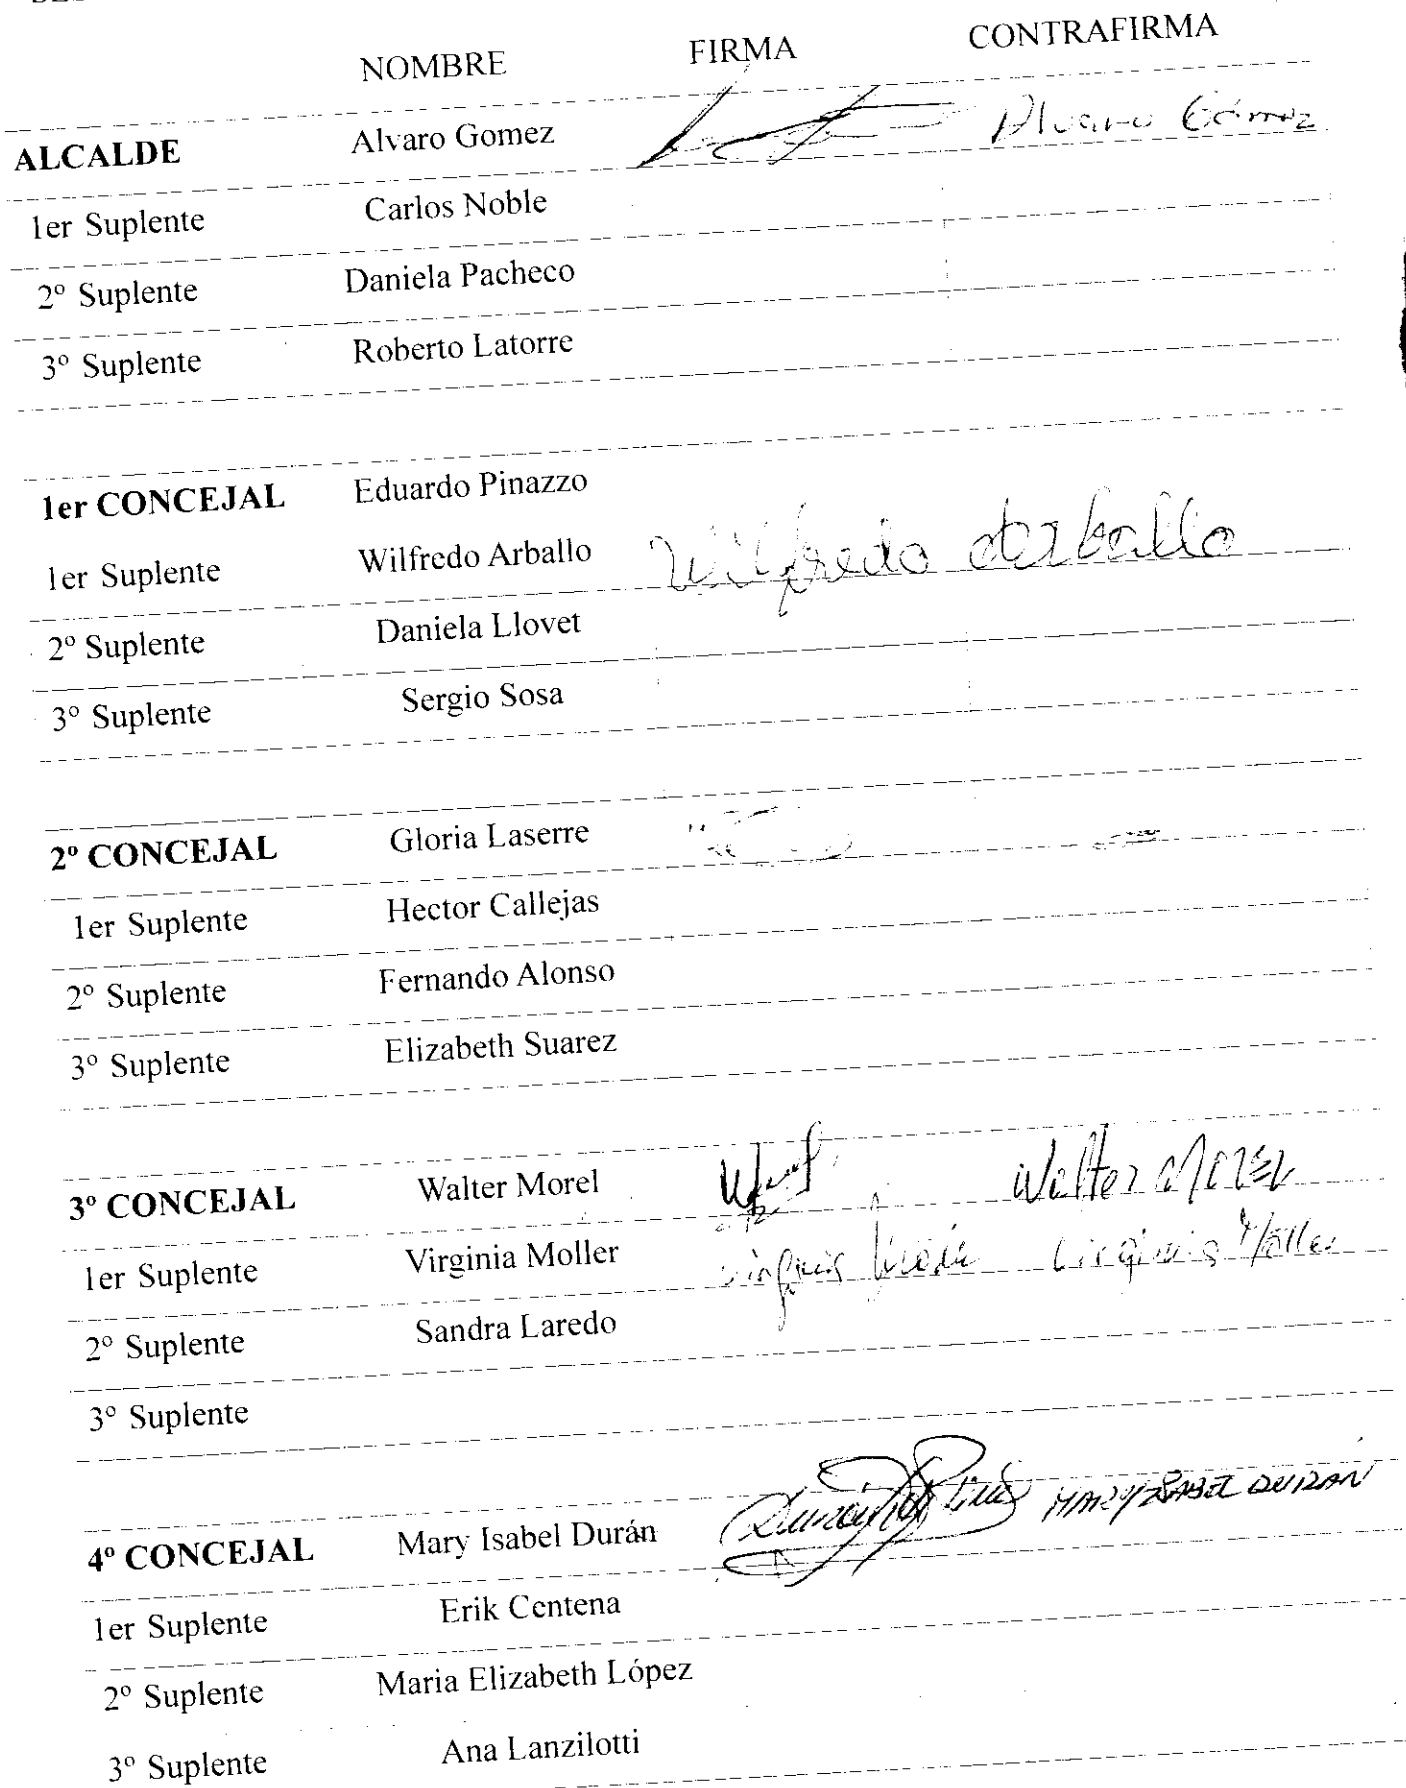 NOMBRE FIRMA CONTRAFIRMA
ALCALDE Alvaro Gomez Alvaro Gómez
1er Suplente Carlos Noble
2º Suplente Daniela Pacheco
3º Suplente Roberto Latorre
1er CONCEJAL Eduardo Pinazzo
1er Suplente Wilfredo Arballo Wilfredo Arballo
2º Suplente Daniela Llovet
3º Suplente Sergio Sosa
2º CONCEJAL Gloria Laserre
1er Suplente Hector Callejas
2º Suplente Fernando Alonso
3º Suplente Elizabeth Suarez
3º CONCEJAL Walter Morel Walter MOREL
1er Suplente Virginia Moller Virginia Virginia Möller
2º Suplente Sandra Laredo
3º Suplente
4º CONCEJAL Mary Isabel Durán MARY ISABEL DURÁN
1er Suplente Erik Centena
2º Suplente Maria Elizabeth López
3º Suplente Ana Lanzilotti